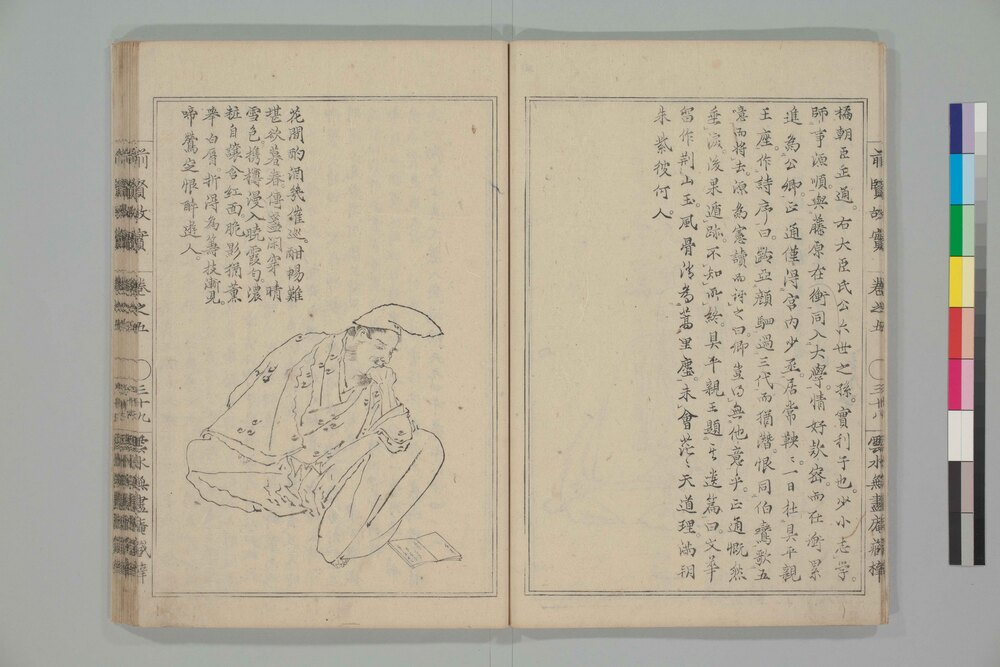 前賢故實
卷之五
三十八
雲水無盡庵藏梓
橘朝臣正通。右大臣氏公六世之孫。實利子也。少小志學。
師事源順。與藤原在衡同入大學。情好款密而在衡累
進為公卿。正通僅得宮內少丞。居常鞅々。一日赴具平親
王座。作詩序曰。齡亞顏駟過三代而猶潛。恨同伯鸞歌五
噫而將去。源為憲讀而訝之曰。卿豈得無他意乎。正通慨然
垂淚。後果遁跡。不知所終。具平親王題其遺篇曰。文華
留作荊山玉。風骨消為蒿里塵。未會茫々天道理滿朝
朱紫彼何人。
花間酌酒幾催巡。酣暢難
堪欲暮春。傳盞閑穿晴
雪色。携樽漫入曉霞勻。濃
粧自讓含紅面。脆影猶薰
舉白脣。折得為籌枝漸見。
啼鶯定恨醉遊人。
前賢故實
卷之五
三十九
雲水無盡庵藏梓